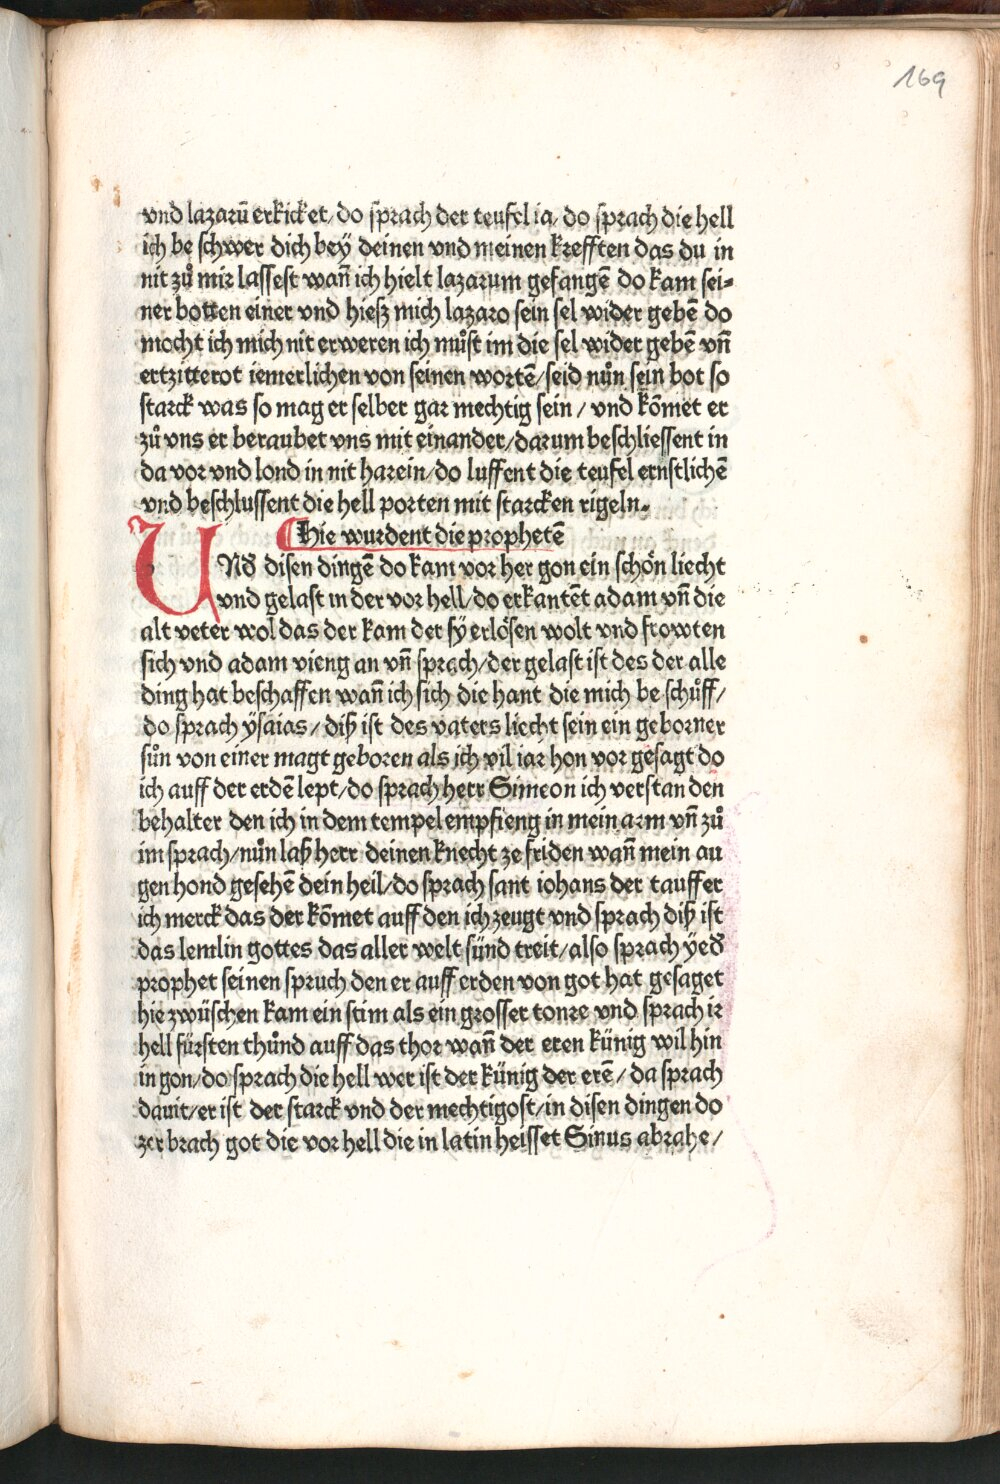 169
vnd lazarū erkicket/ do sprach der teufel ia/ do sprach die hell
ich be schwer dich beÿ deinen vnd meinen krefften das du in
nit zů mir lassest wañ ich hielt lazarum gefangē do kam sei⸗
ner botten einer vnd hiesz mich lazaro sein sel wider gebē do
mocht ich mich nit erweren ich můst im die sel wider gebē vñ
ertzitterot iemerlichen von seinen wortē/ seid nůn sein bot so
starck was so mag er selber gar mechtig sein / vnd kōmet er
zů vns er beraubet vns mit einander/ darum beschliessent in
da vor vnd lond in nit harein/ do luffent die teufel ernstlichē
vnd beschlussent die hell porten mit starcken rigeln.
Hie wurdent die prophetē
UNd̄ disen dingē do kam vor her gon ein schȯn liecht
vnd gelast in der vor hell/ do erkantēt adam vñ die
alt veter wol das der kam der sÿ erlȯsen wolt vnd frowten
sich vnd adam vieng an vñ sprach/ der gelast ist des der alle
ding hat beschaffen wañ ich sich die hant die mich be schůff/
do sprach ysaias / diß ist des vaters liecht sein ein geborner
sůn von einer magt geboren als ich vil iar hon vor gesagt do
ich auff der erdē lept/ do sprach herr Simeon ich verstan den
behalter den ich in dem tempel empfieng in mein arm vñ zů
im sprach/ nůn laß herr deinen knecht ze friden wañ mein au
gen hond gesehē dein heil/ do sprach sant iohans der tauffer
ich merck das der kōmet auff den ich zeugt vnd sprach diß ist
das lemlin gottes das aller welt sünd treit/ also sprach ÿed̄
prophet seinen spruch den er auff erden von got hat gesaget
hie zwüschen kam ein stim als ein grosser tonre vnd sprach ir
hell fürsten thůnd auff das thor wañ der eren künig wil hin
in gon/ do sprach die hell wer ist der künig der erē / da sprach
dauit/ er ist der starck vnd der mechtigost/ in disen dingen do
zer brach got die vor hell die in latin heisset Sinus abrahe/